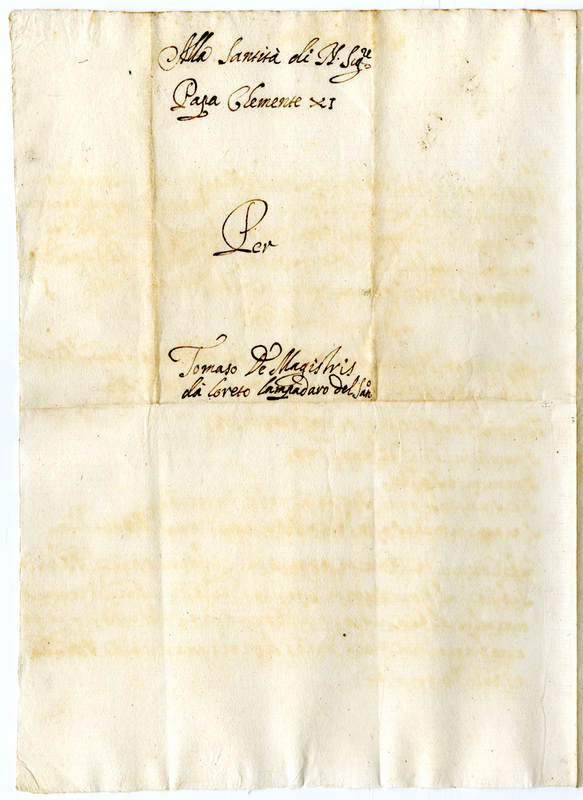 Alla Santità di N. Sig.re
Papa Clemente XI
Per
Tomaso De Magistris
da Loreto Lampadaro del San.o